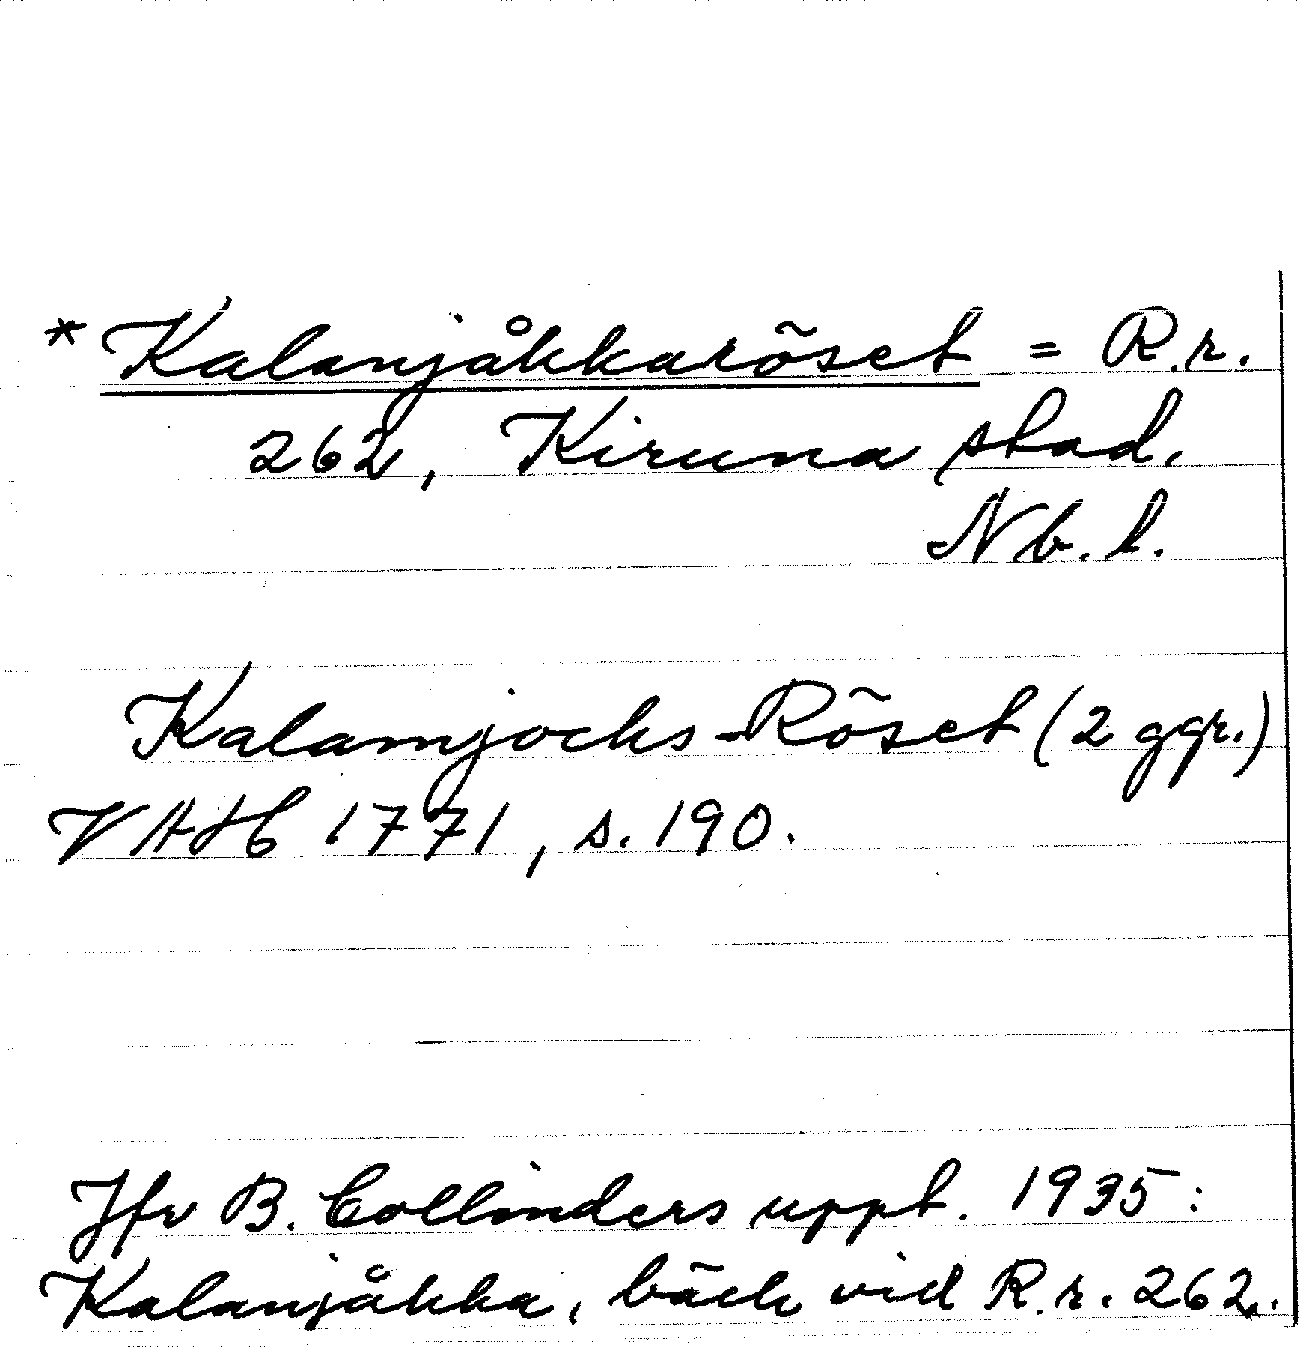 * Kalanjåkkaröset = R.r.
262, Kiruna stad.
Nb. l.
Kalamjocks-Röset (2 ggr.)
VAHC 1771, s. 190.
Jfr B. Collinders uppt. 1935:
Kalanjåkka, bäck vid R.r. 262.